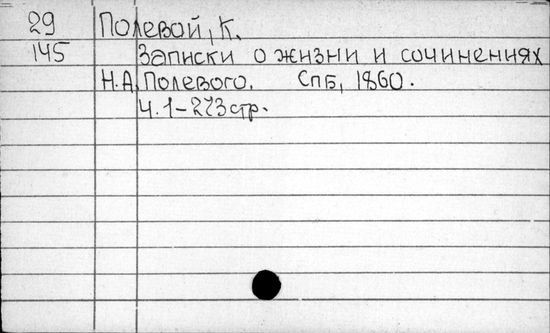 29 Полевой, К.
145 Записки о жизни и сочинениях
Н.А. Полевого. СПБ, 1860.
Ч.1-273стр.